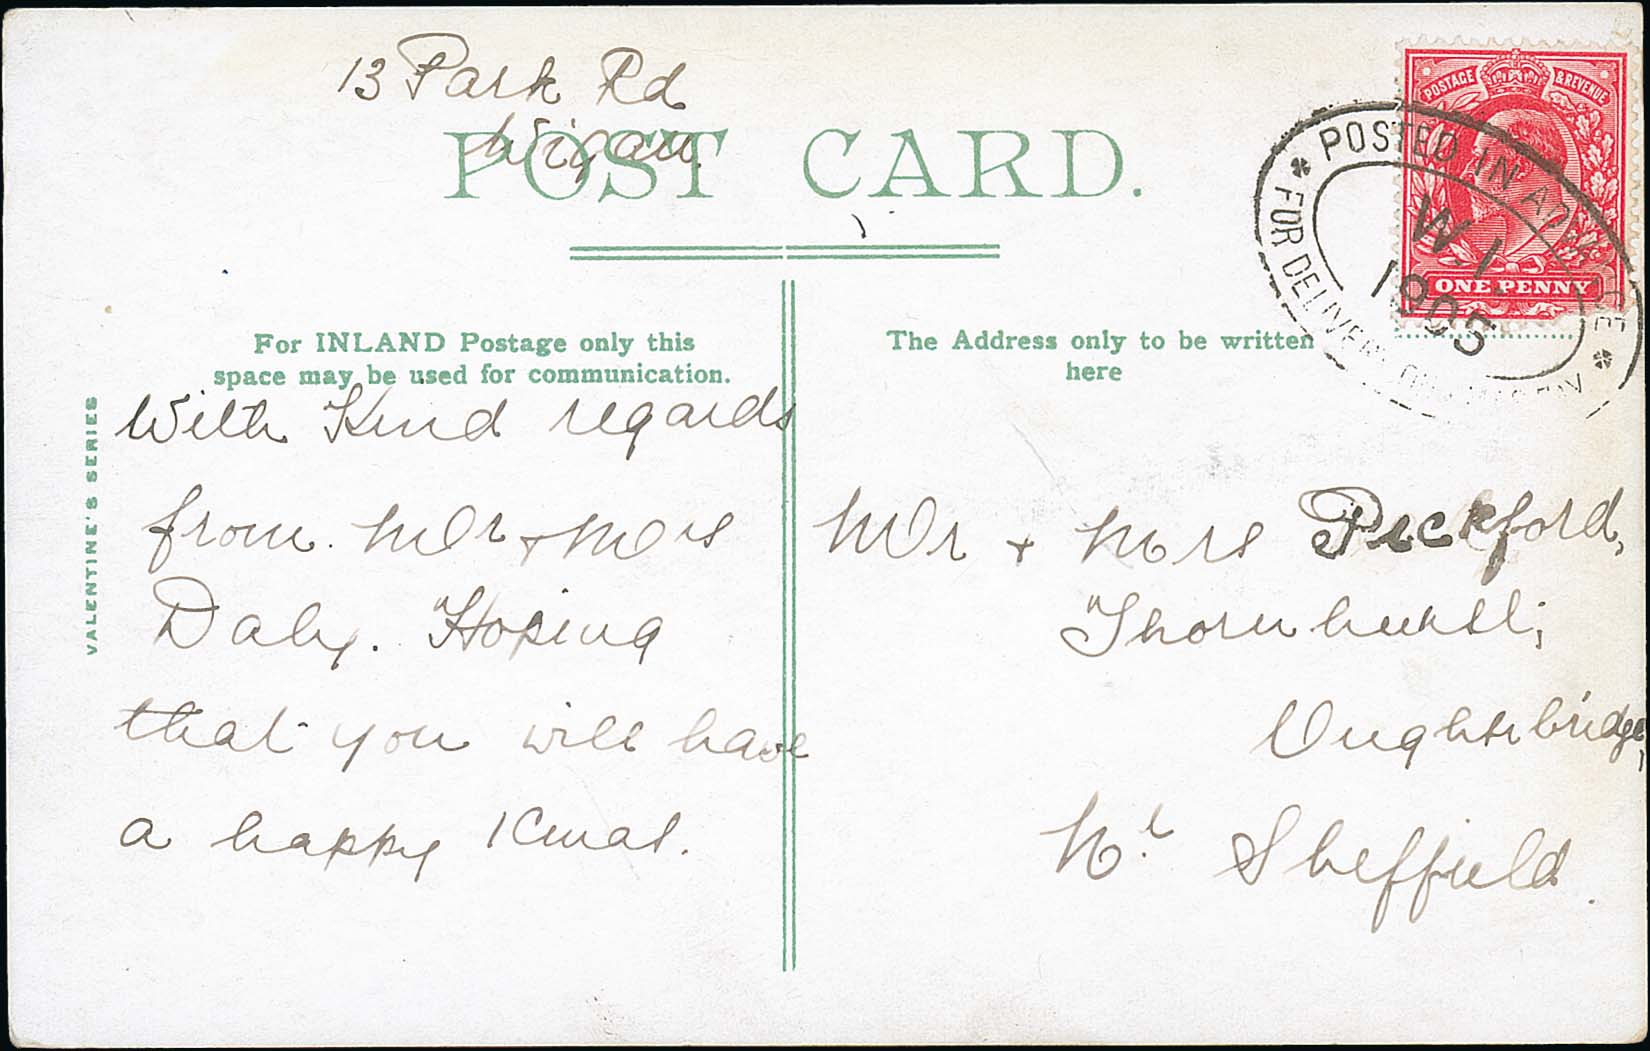 13 Park Rd
Wigan.
POST CARD.
POSTAGE & REVENUE
ONE PENNY
POSTED IN ADVANCE
FOR DELIVERY ON XMAS DAY
W.1.
1905
For INLAND Postage only this
space may be used for communication.
The Address only to be written
here
VALENTINE'S SERIES
With Kind regards
from Mr + Mrs
Daly. Hoping
that you will have
a happy Xmas.
Mr + Mrs Peckford,
Thornhurst,
Oughtibridge,
Nr. Sheffield.